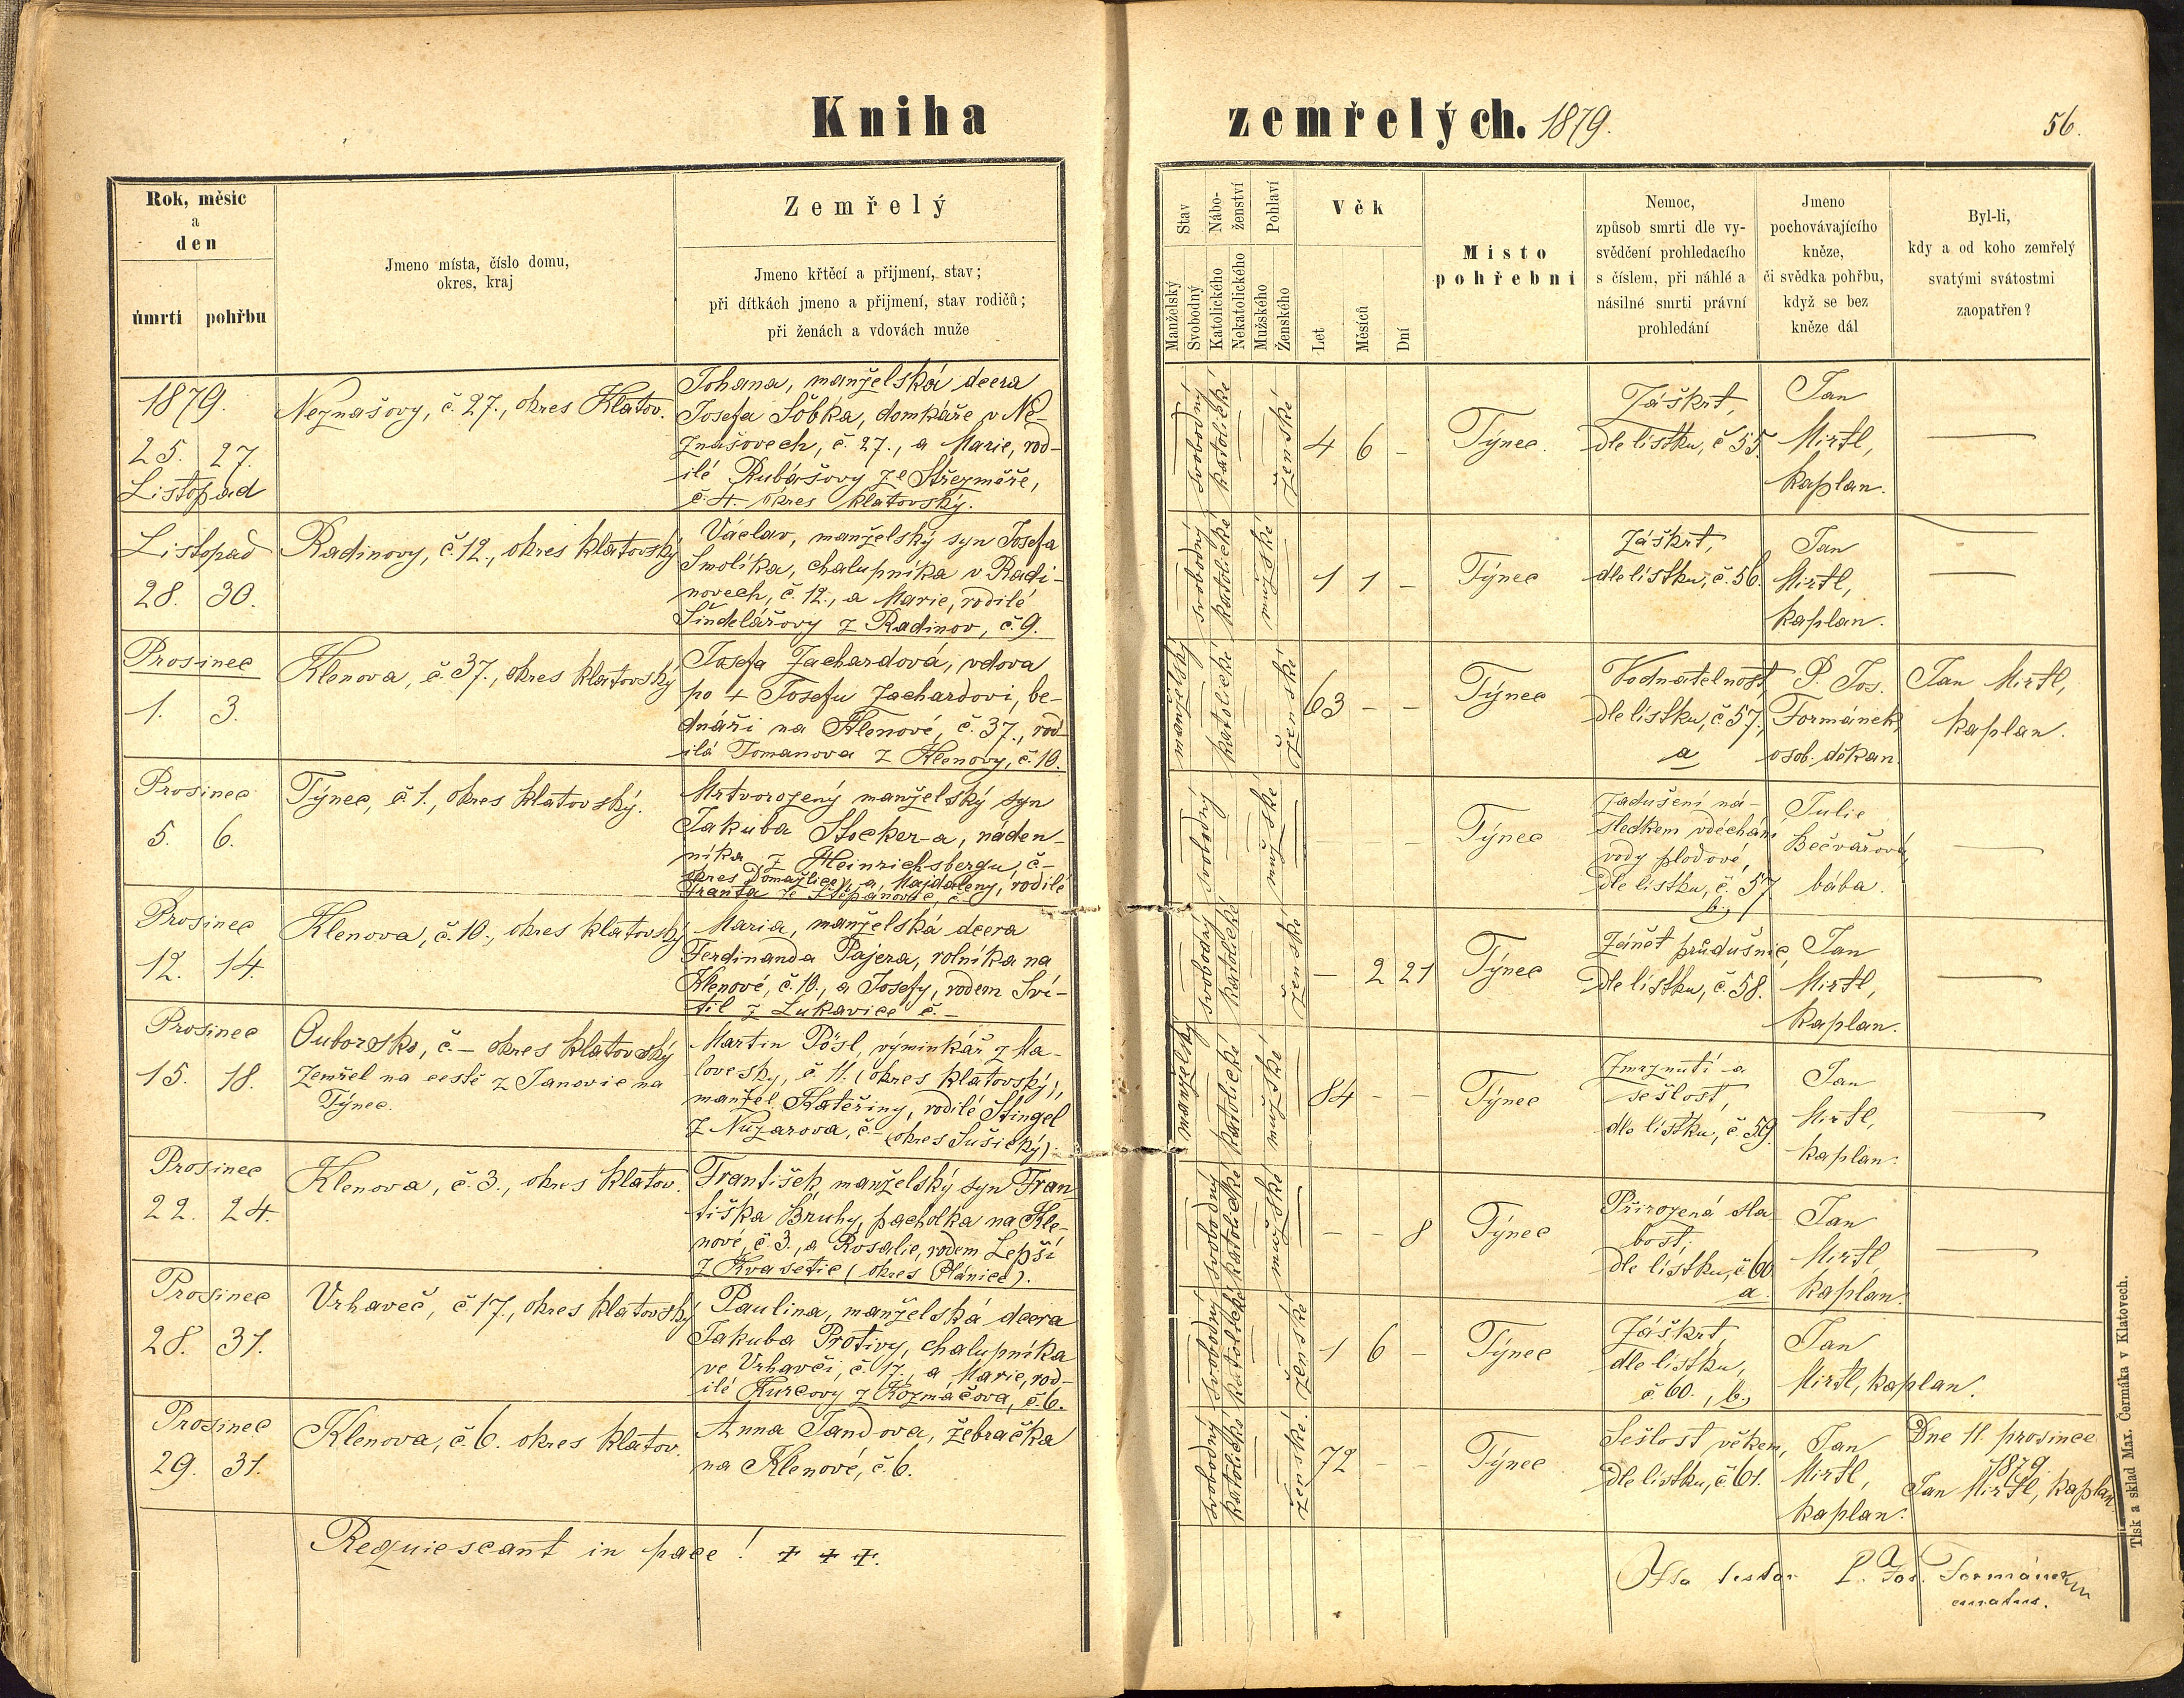 Kniha
zemřelých. 1879.
56.
Rok, měsíc
a
den
úmrtí
pohřbu
Jmeno místa, číslo domu,
okres, kraj
Zemřelý
Jmeno křtěcí a přijmení, stav;
při dítkách jmeno a přijmení, stav rodičů;
při ženách a vdovách muže
Stav
Nábo-
ženství
Pohlaví
Manželský
Svobodný
Katolického
Nekatolického
Mužského
Ženského
Věk
Let
Měsíců
Dní
Místo
pohřební
Nemoc,
způsob smrti dle vy-
svědčení prohledacího
s číslem, při náhlé a
násilné smrti právní
prohledání
Jmeno
pochovávajícího
kněze,
či svědka pohřbu,
když se bez
kněze dál
Byl-li,
kdy a od koho zemřelý
svatými svátostmi
zaopatřen?
1879.
25. 27.
Listopad
Neznašovy, č. 27., okres Klatov.
Johana, manželská dcera
Josefa Šobka, domkáře v Ne-
znašovech, č. 27., a Marie, rod-
ilé Rubášovy ze Střezměře,
č. 4. okres klatovský.
svobodný
katolické
ženské
4 6 -
Týnec.
Záškrt,
dle lístku, č 55.
Jan
Mirtl,
kaplan.
Listopad
28. 30.
Radinovy, č. 12., okres klatovský
Václav, manželský syn Josefa
Smolíka, chalupníka v Radi-
novech, č. 12., a Marie, rodilé
Šindelářovy z Radinov, č. 9.
svobodný
katolické
mužské
1 1 -
Týnec
Záškrt,
dle lístku, č. 56.
Jan
Mirtl,
kaplan.
Prosinec
1. 3.
Klenova, č. 37., okres klatovský
Josefa Zachardová, vdova
po + Josefu Zachardovi, be-
dnáři na Klenové, č. 37., rod-
ilá Tomanova z Klenovy, č. 10.
manželský
katolické
ženské
63 - -
Týnec
Vodnatelnost
dle lístku, č 57.,
a
P. Jos.
Formánek,
osob. děkan
Jan Mirtl,
kaplan.
Prosinec
5. 6.
Týnec, č. 1., okres klatovský.
Mrtvorozený manželský syn
Jakuba Stocker-a, náden-
níka z Heinrichsbergu č-
okres Domažlice, a Majdaleny, rodilé
Franta ze Štěpánovic, č.-
svobodný
mužské
- - -
Týnec
Zadušení ná-
sledkem vdechání
vody plodové,
dle lístku, č. 57
b.,
Julie
Bečvářová,
bába.
Prosinec
12. 14.
Klenova, č. 10., okres klatovský
Maria, manželská dcera
Ferdinanda Pajera, rolníka na
Klenové, č. 10., a Josefy, rodem Sví-
til z Lukavice č.-
svobodný
katolické
ženské
- 2 21
Týnec
Zánět průdušnic,
dle lístku, č. 58.
Jan
Mirtl,
kaplan.
Prosinec
15. 18.
Ouborsko, č.- okres klatovský
Zemřel na cestě z Janovic na
Týnec.
Martin Pösl, výminkář z Ma-
lovesky, č. 11. (okres klatovský),
manžel Kateřiny, rodilé Stingel
z Nuzarova, č.- (okres Sušický).
manželský
katolické
mužské
84 - -
Týnec
Zmrznutí a
sešlost,
dle lístku, č. 59.
Jan
Mirtl,
kaplan.
Prosinec
22. 24.
Klenova, č. 3., okres klatov.
František manželský syn Fran-
tiška Bruhy, pacholka na Kle-
nové, č. 3., a Rosalie, rodem Lepší
z Kvasetic (okres Plánice).
svobodný
katolické
mužské
- - 8
Týnec
Přirozená sla-
bost,
dle lístku, č 60
a.
Jan
Mirtl,
kaplan.
Prosinec
28. 31.
Vrhaveč, č. 17., okres klatovský
Paulina, manželská dcera
Jakuba Protivy, chalupníka
ve Vrhavči, č. 17., a Marie, rod-
ilé Kurcovy z Kozmáčova, č. 6.
svobodný
katolické
ženské
1 6 -
Týnec
Záškrt,
dle lístku,
č 60., b.,
Jan
Mirtl, kaplan.
Prosinec
29. 31.
Klenova, č. 6. okres klatov.
Anna Jandova, žebračka
na Klenové, č. 6.
svobodný
katolické
ženské.
72 - -
Týnec
Sešlost věkem,
dle lístku, č 61.
Jan
Mirtl,
kaplan.
Dne 11. prosince
1879.
Jan Mirtl, kaplan
Requiescant in pace! + + +.
Ita testor P. Jos. Formánek
curatus.
Tisk a sklad Max. Čermáka v Klatovech.